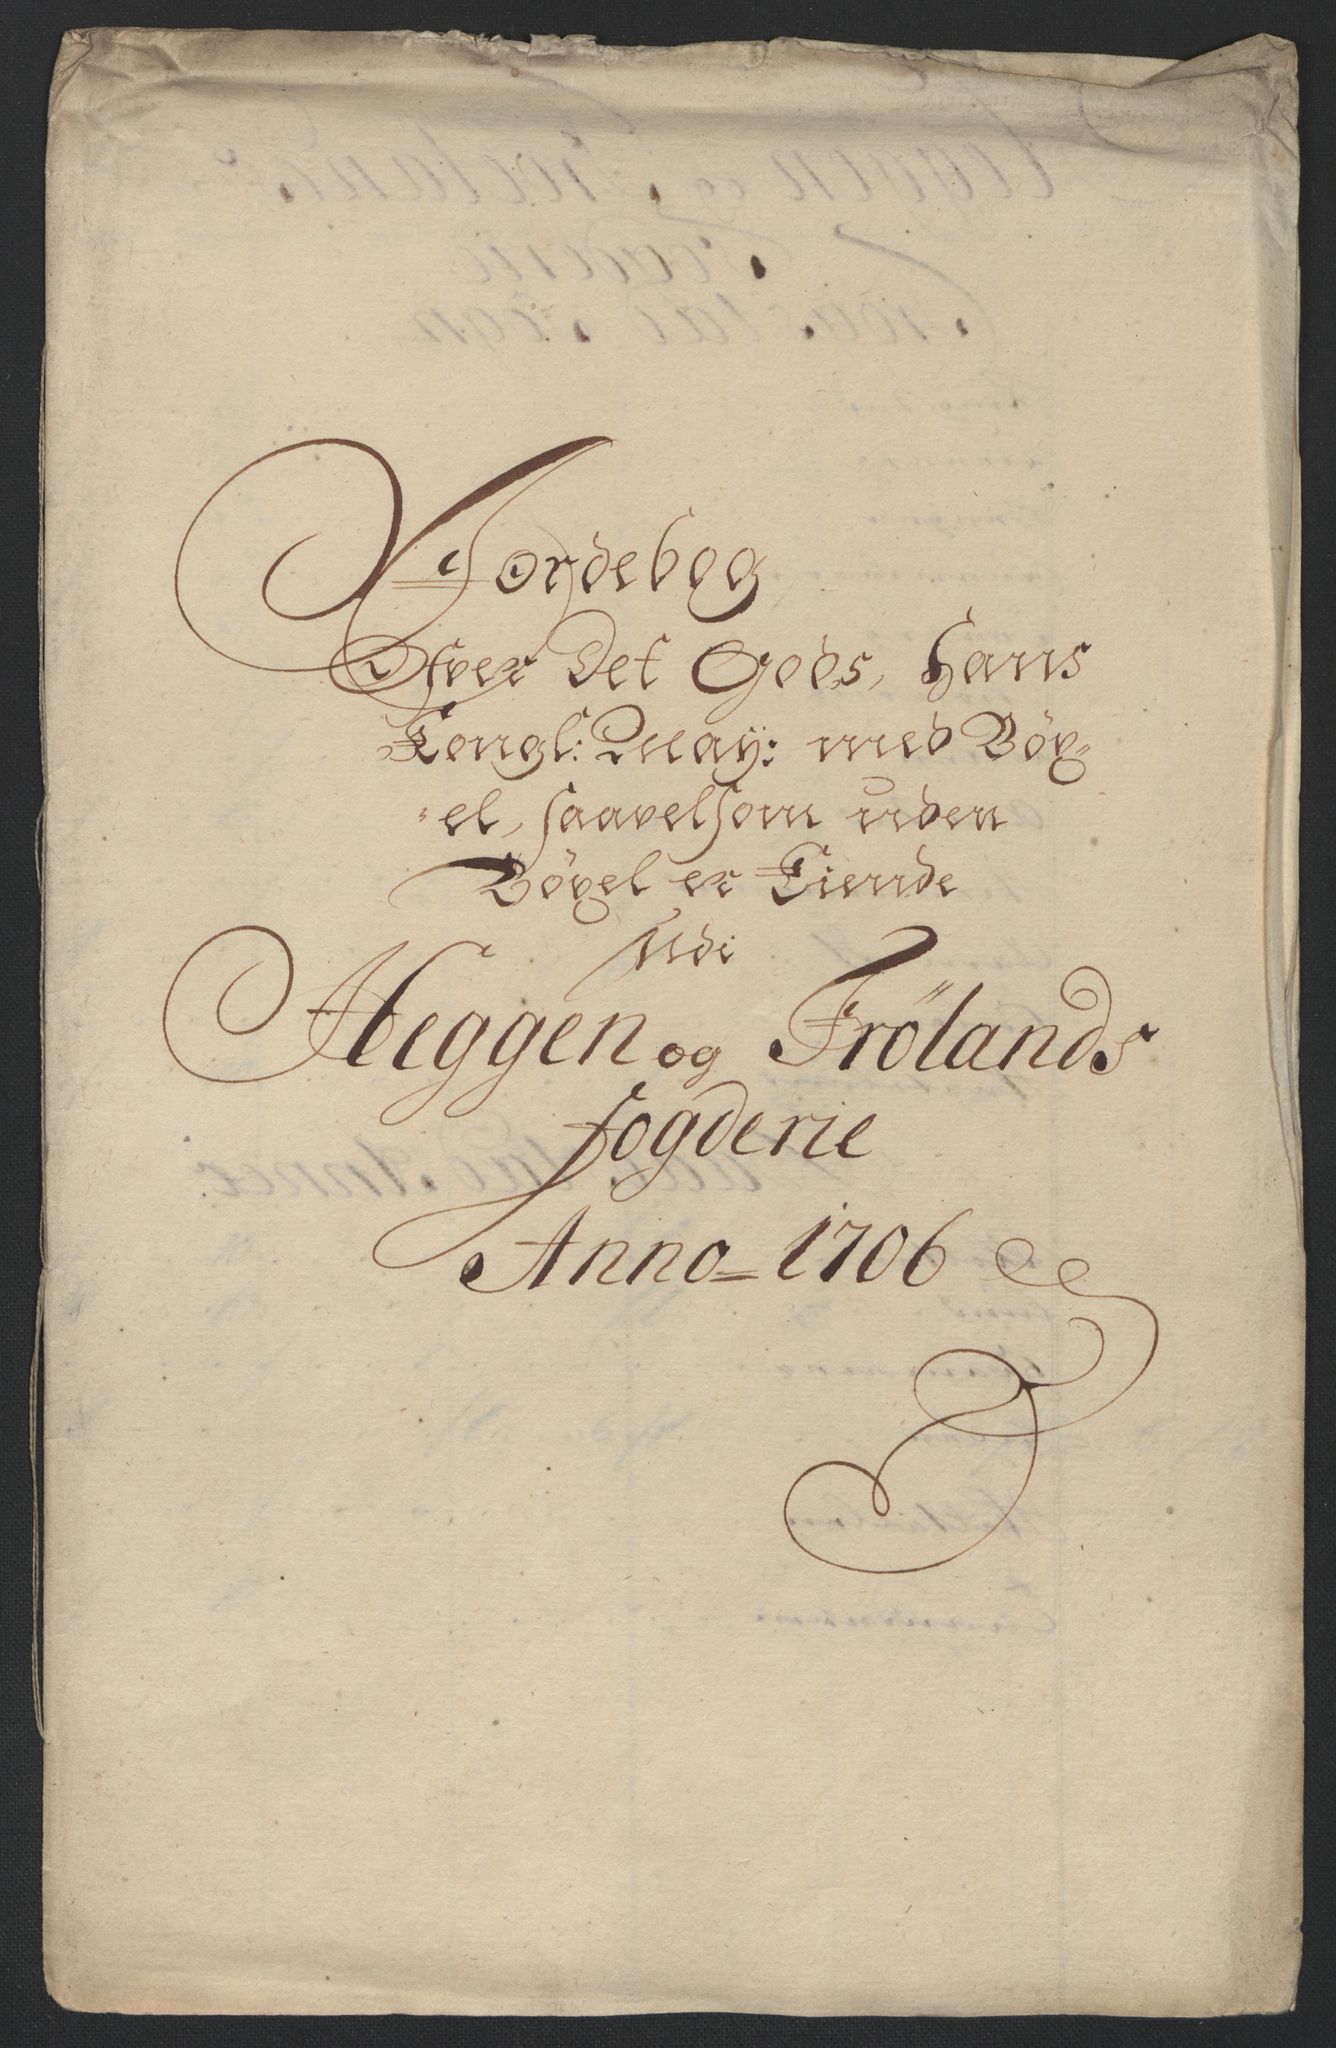 Jordebog
Ofver Det Gods, Hans
Kongl: May: med Böx-
-el, saavelsom uden
Böxel er Eiende
Udi
Heggen og Frölands
fogderie
Anno = 1706